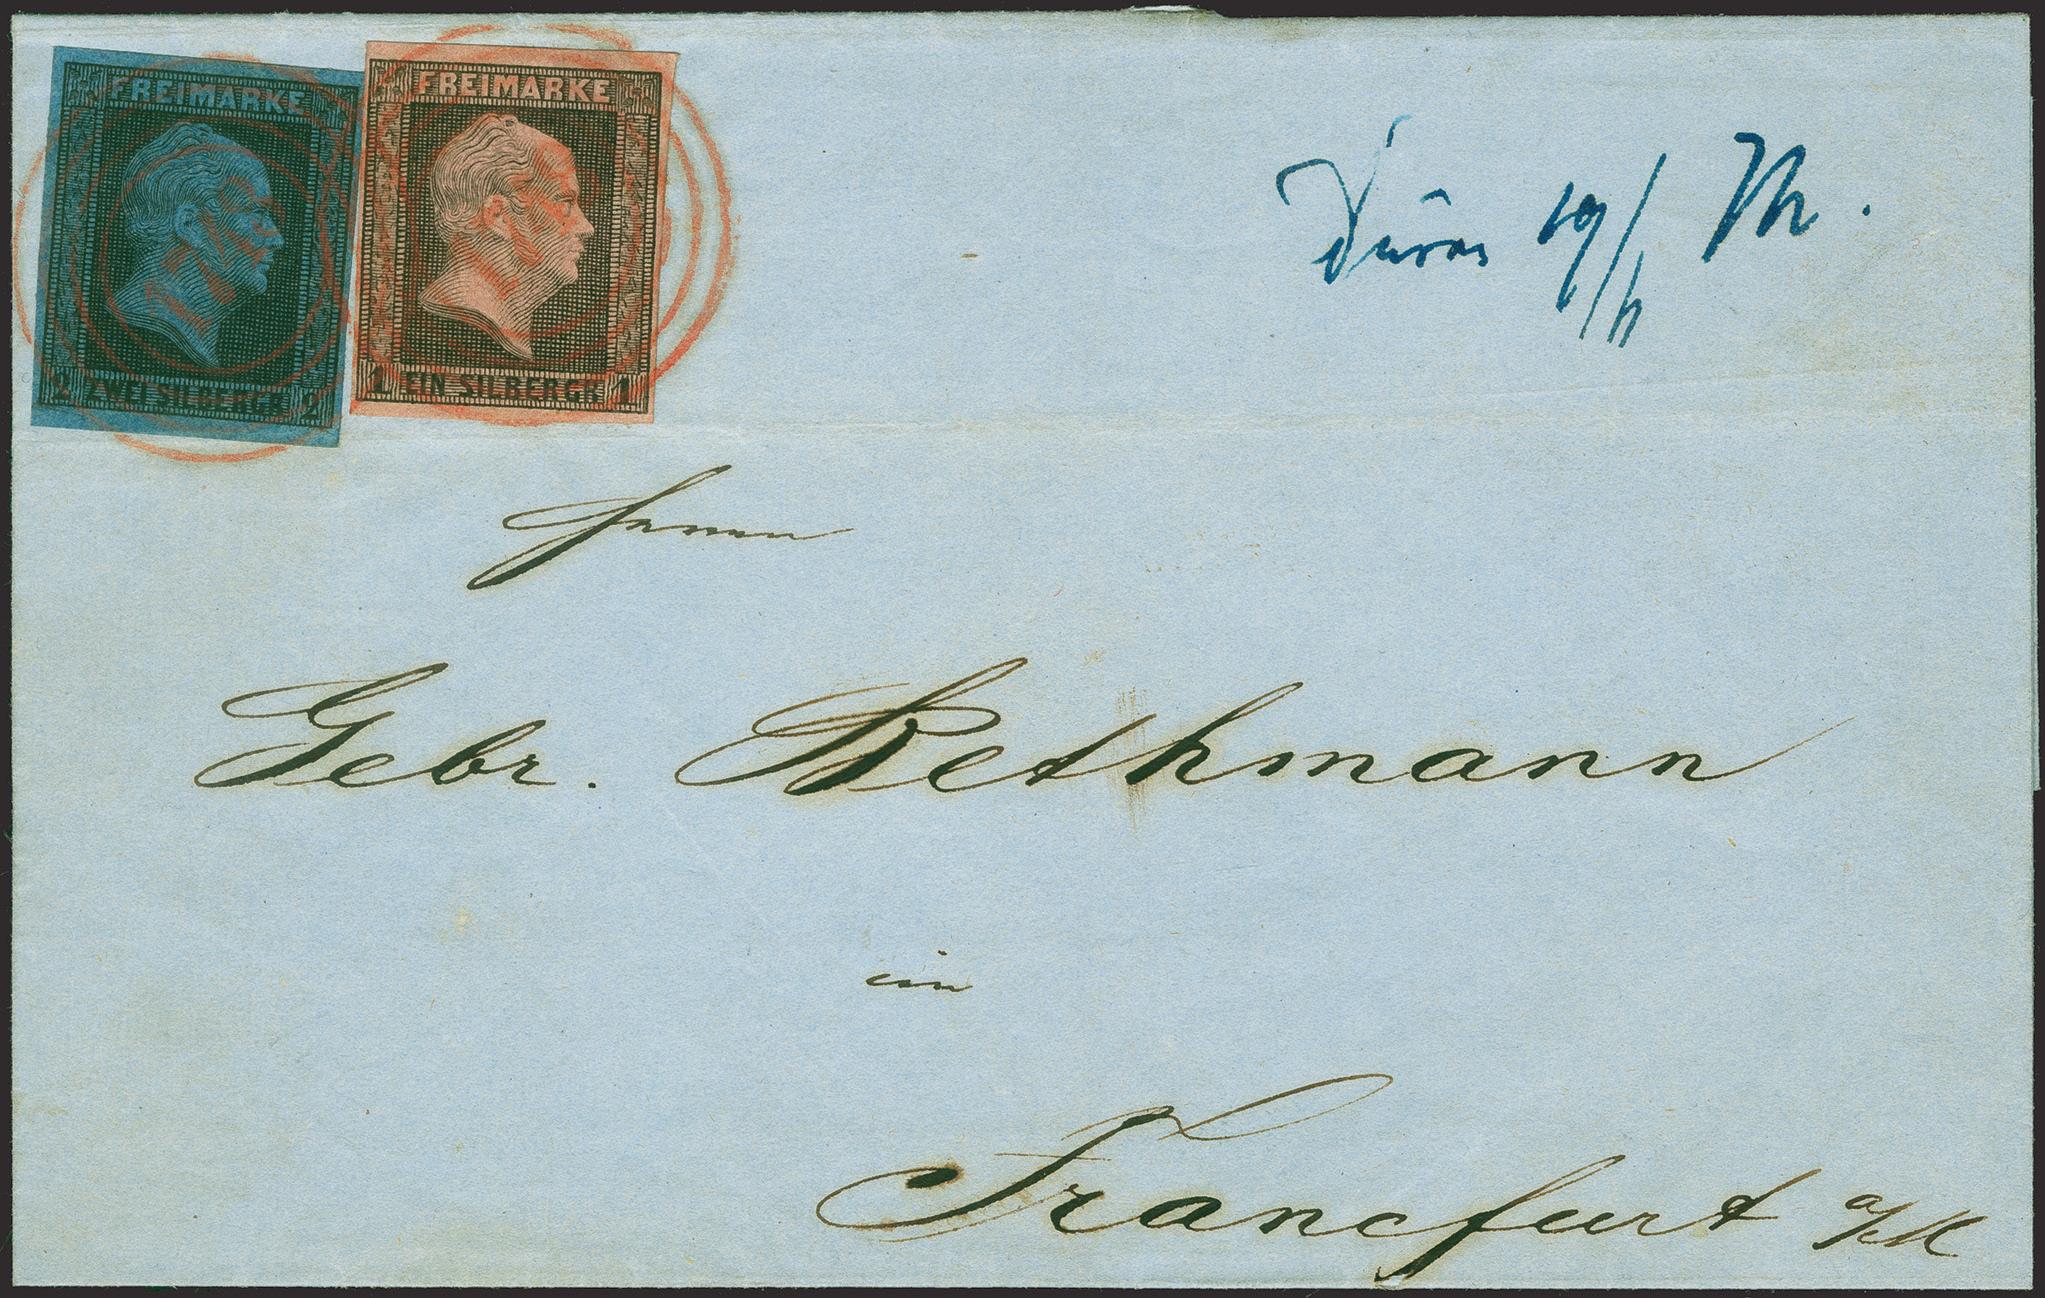 FREIMARKE
2 ZWEI SILBERGR. 2
FREIMARKE
1 EIN SILBERGR. 1
Düren 19/11
Herrn
Gebr. Bethmann
in
Francfurt a/M